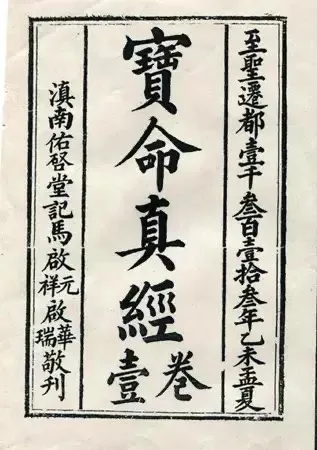 至聖遷都壹千叁百壹拾叁年乙未孟夏
寶命真經
壹卷
滇南佑啓堂記馬啟元祥啟華瑞敬刊